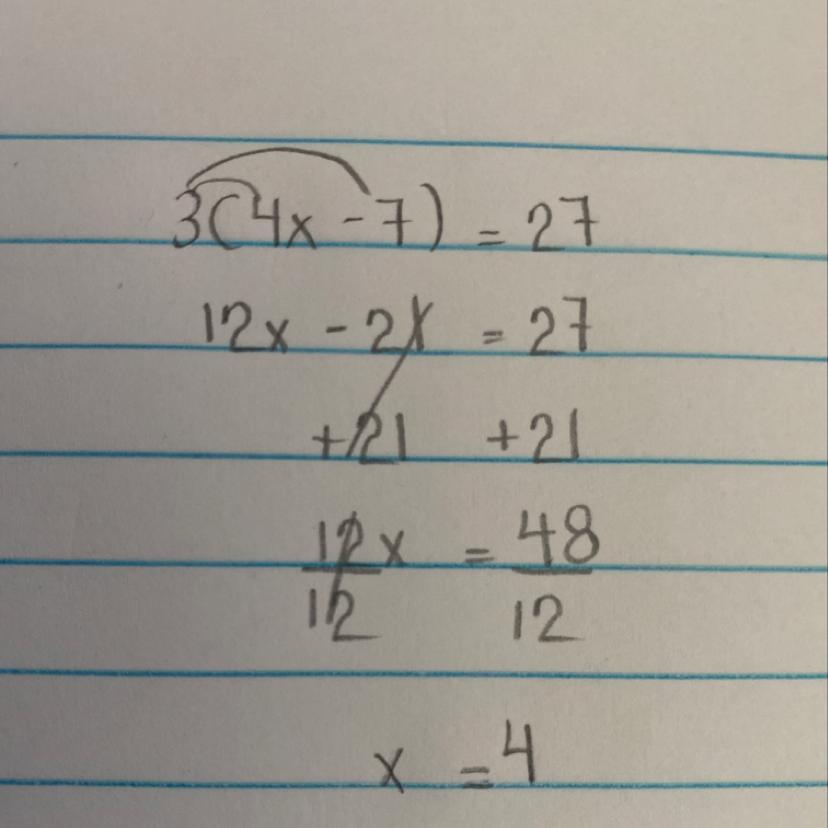 3(4x - 7) = 27
12x - 21 = 27
+21 +21
12x = 48
12 12
x = 4